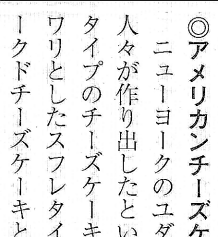 ◎アメリカンチーズケ
ニューヨークのユダ
人々が作り出したとい
タイプのチーズケーキ
ワリとしたスフレタイ
ークドチーズケーキと